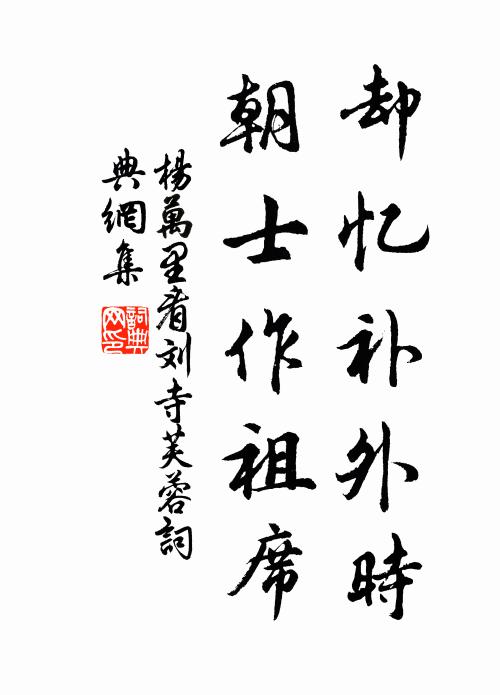 却忆补外時
朝士作祖席
楊萬里看刘寺芙蓉詞
典網集
詞典
网印